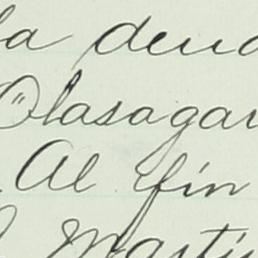 la deud
Olasagar
Al fin
Martin